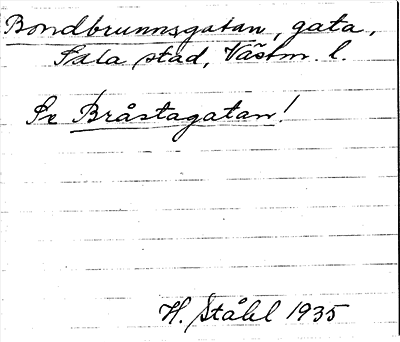 Bondbrunnsgatan, gata,
Sala stad, Västm. l.
Se Bråstagatan!
H. Ståhl 1935